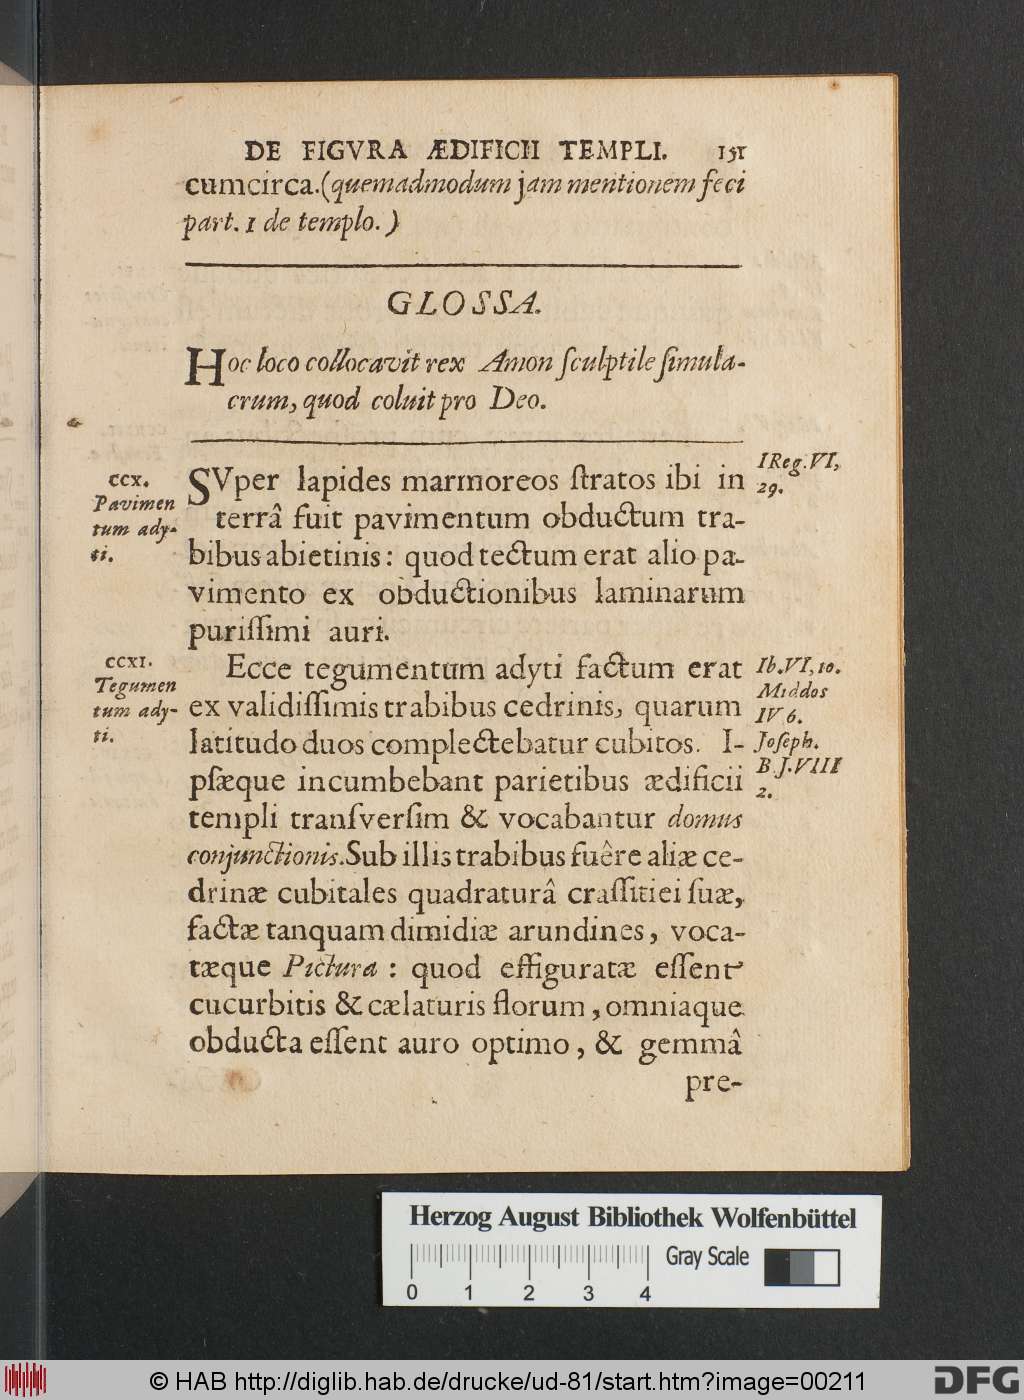 DE FIGVRA ÆDIFICII TEMPLI. 151
cumcirca.(quemadmodum jam mentionem feci
part. 1 de templo.)
GLOSSA.
Hoc loco collocavit rex Amon ſculptile ſimula-
crum, quod coluit pro Deo.
CCX.
Pavimen
tum ady-
ti.
SVper lapides marmoreos ſtratos ibi in
terrâ fuit pavimentum obductum tra-
bibus abietinis: quod tectum erat alio pa-
vimento ex obductionibus laminarum
puriſſimi auri.
I Reg. VI,
29.
CCXI.
Tegumen
tum ady-
ti.
Ecce tegumentum adyti factum erat
ex validiſſimis trabibus cedrinis, quarum
latitudo duos complectebatur cubitos. I-
pſæque incumbebant parietibus ædificii
templi tranſverſim & vocabantur domus
conjunctionis. Sub illis trabibus fuêre aliæ ce-
drinæ cubitales quadraturâ craſſitiei ſuæ,
factæ tanquam dimidiæ arundines, voca-
tæque Pictura : quod effiguratæ eſſent
cucurbitis & cælaturis florum, omniaque
obducta eſſent auro optimo, & gemmâ
pre-
Ib. VI, 10.
Middos
IV 6.
Joſeph.
B. J. VIII
2.
Herzog August Bibliothek Wolfenbüttel
Gray Scale
0 1 2 3 4
© HAB http://diglib.hab.de/drucke/ud-81/start.htm?image=00211
DFG